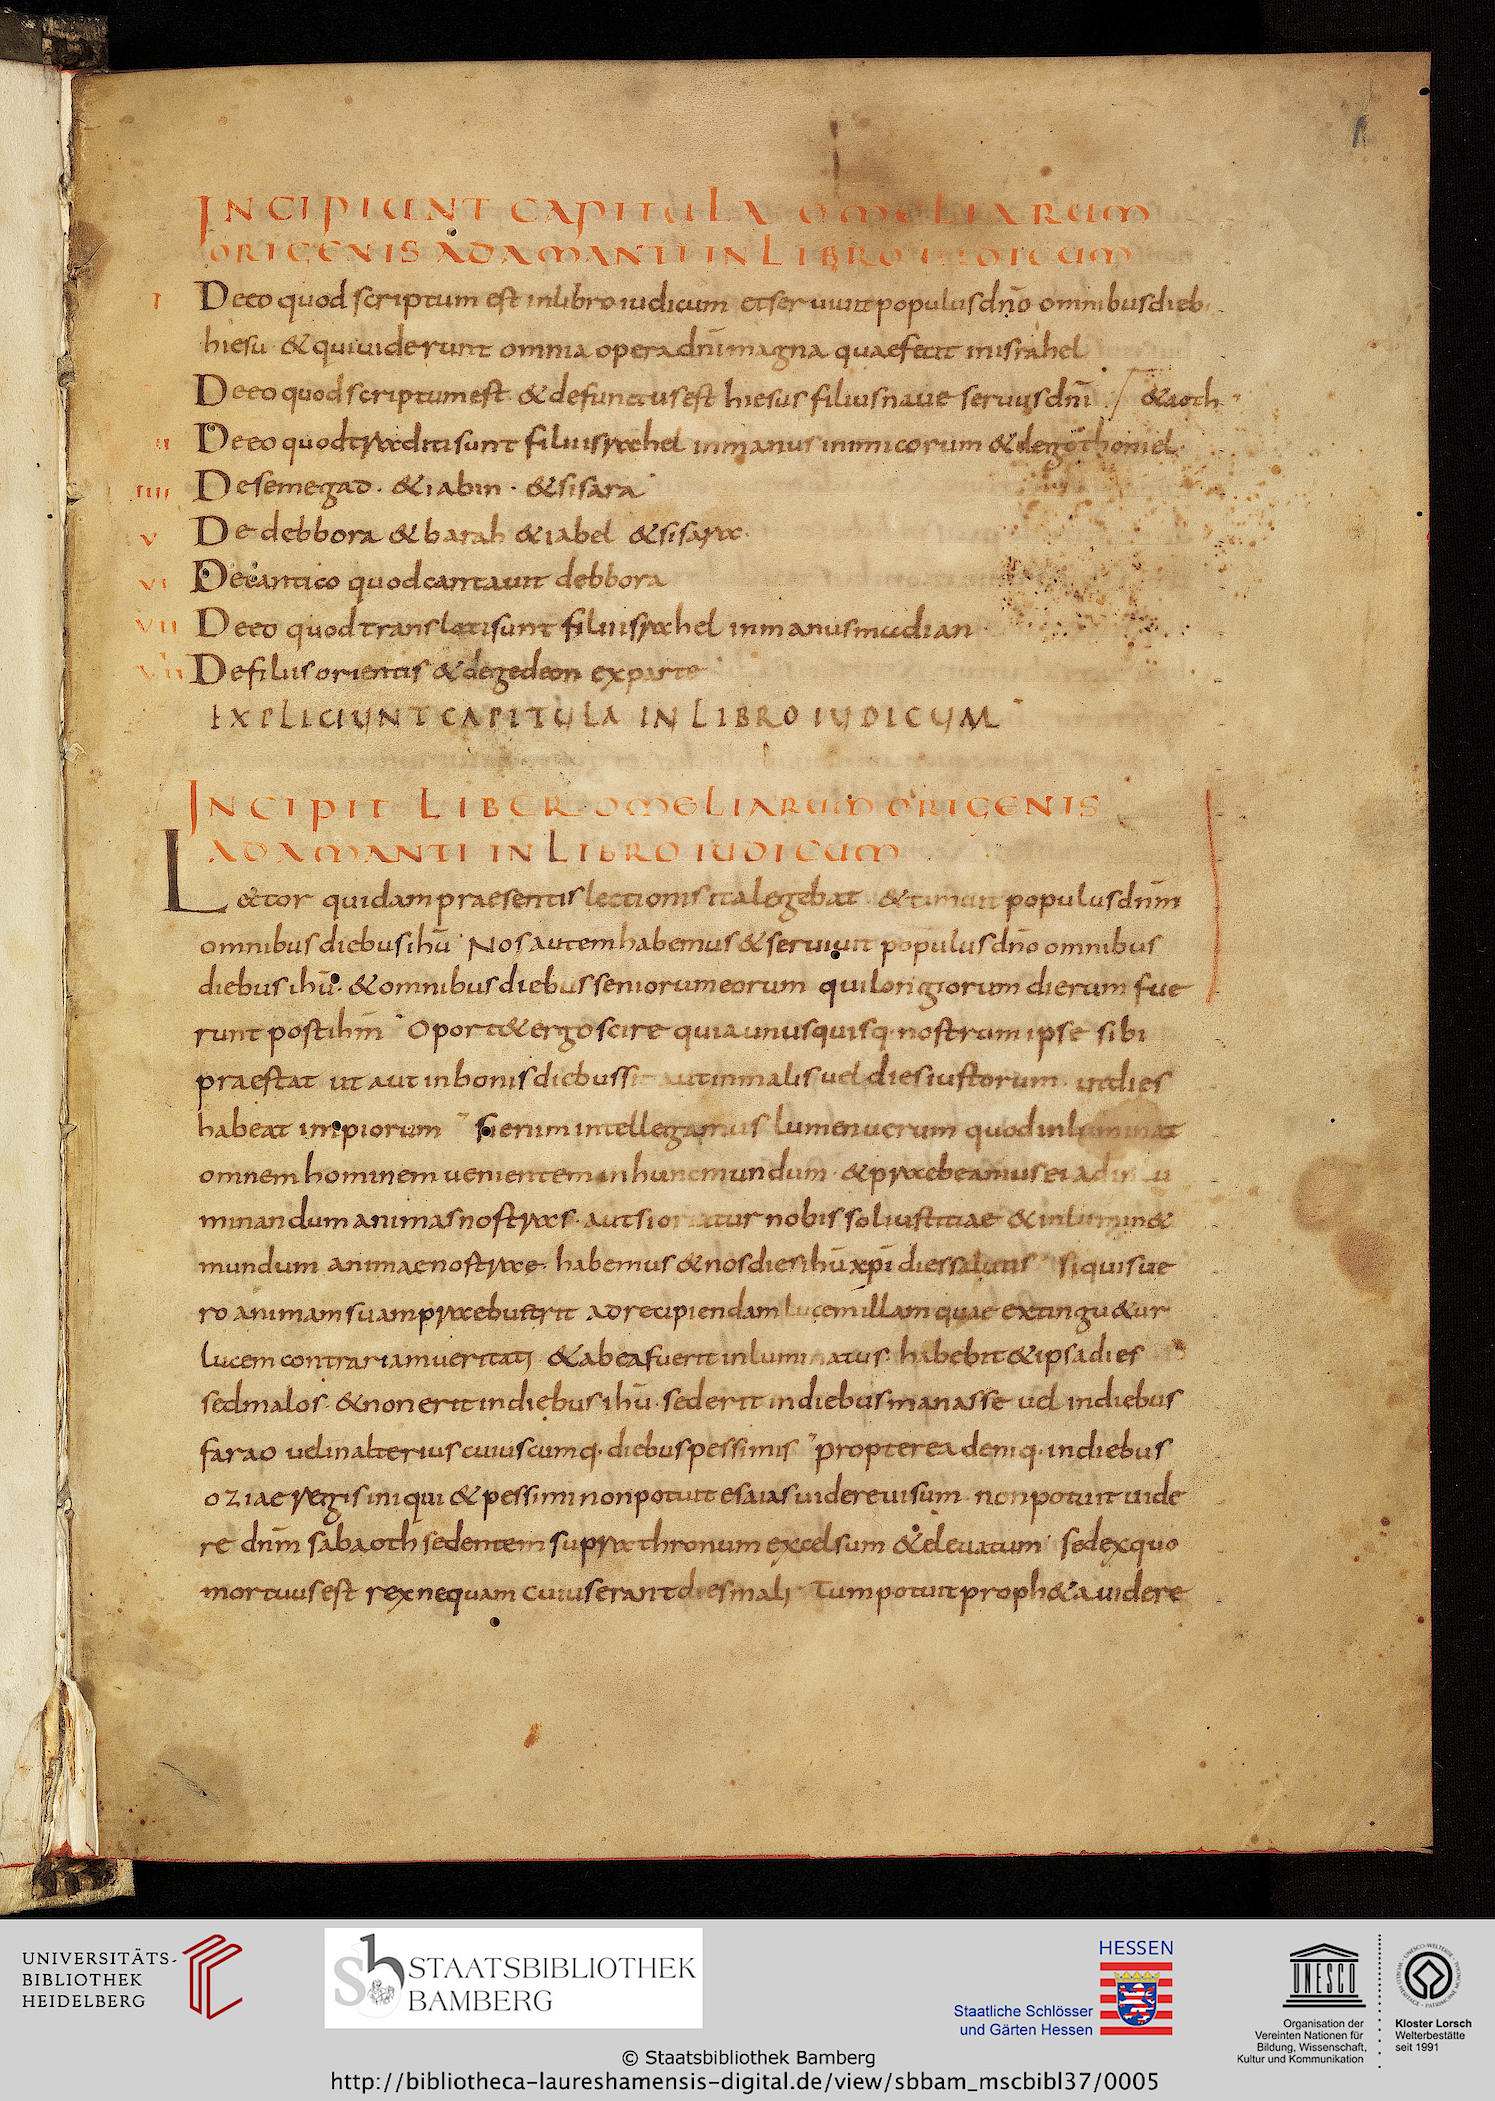 1
INCIPIUNT CAPITULA OMELIARUM
ORIGENIS ADAMANTII IN LIBRO IUDICUM
I De eo quod scriptum est in libro iudicum et seruiuit populus dn̄o omnibus dieb·
hiesu · & qui uiderunt omnia opera dn̄i magna quae fecit in israhel
De eo quod scriptum est · & defunctus est hiesus filius naue seruus dn̄i · / & aoth
II De eo quod traditi sunt filii israhel in manus inimicorum & de gothoniel
IIII De semegad · & iabin · & sisara
V De debbora & barah & iabel & sisara ·
VI De cantico quod cantauit debbora
VII De eo quod translati sunt filii israhel in manus madian
VIII De filiis orientis & de gedeon ex parte
EXPLICIUNT CAPITULA IN LIBRO IUDICUM
INCIPIT LIBER OMELIARUM ORIGENIS
ADAMANTI IN LIBRO IUDICUM
Lector quidam praesentis lectionis ita legebat · & timuit populus dn̄m
omnibus diebus ihū · Nos autem habemus & seruiuit populus dn̄o omnibus
diebus ihū · & omnibus diebus seniorum eorum qui longiorum dierum fue
runt post ihm̄ · Oport& ergo scire quia unusquisq· nostrum ipse sibi
praestat ut aut in bonis diebus sit aut in malis uel dies iustorum · uel dies
habeat impiorum · Si enim intellegamus lumen uerum quod inluminat
omnem hominem uenientem in hunc mundum · & praebeamus ei ad inlu
minandum animas nostras · aut si oriatur nobis sol iustitiae & inlumin&
mundum animae nostrae · habemus & nos dies ihū xp̄i dies salutis · si quis ue
ro animam suam praebuerit ad recipiendam lucem illam quae extingu&ur
lucem contrariam ueritati & ab ea fuerit inluminatus · habebit & ipsa dies
sed malos · & non erit in diebus ihū · sed erit in diebus manasse uel in diebus
farao uel in alterius cuiuscumq· diebus pessimis · propterea deniq· in diebus
oziae regis iniqui & pessimi non potuit esaias uidere uisum · non potuit uide
re dn̄m sabaoth sedentem supra thronum excelsum & eleuatum · sed ex quo
mortuus est rex nequam cuius erant dies mali · Tum potuit proph&a uidere
UNIVERSITÄTS-
BIBLIOTHEK
HEIDELBERG
sb STAATSBIBLIOTHEK
BAMBERG
HESSEN
Staatliche Schlösser
und Gärten Hessen
UNESCO
Organisation der
Vereinten Nationen für
Bildung, Wissenschaft,
Kultur und Kommunikation
Kloster Lorsch
Welterbestätte
seit 1991
© Staatsbibliothek Bamberg
http://bibliotheca-laureshamensis-digital.de/view/sbbam_mscbibl37/0005